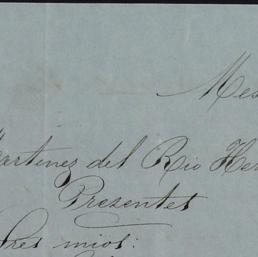 Mex
Martinez del Rio Her
Presentes
Sres mios: